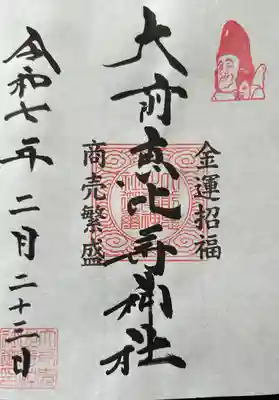 金運招福
大前恵比寿神社
商売繁盛
令和七年二月二十三日